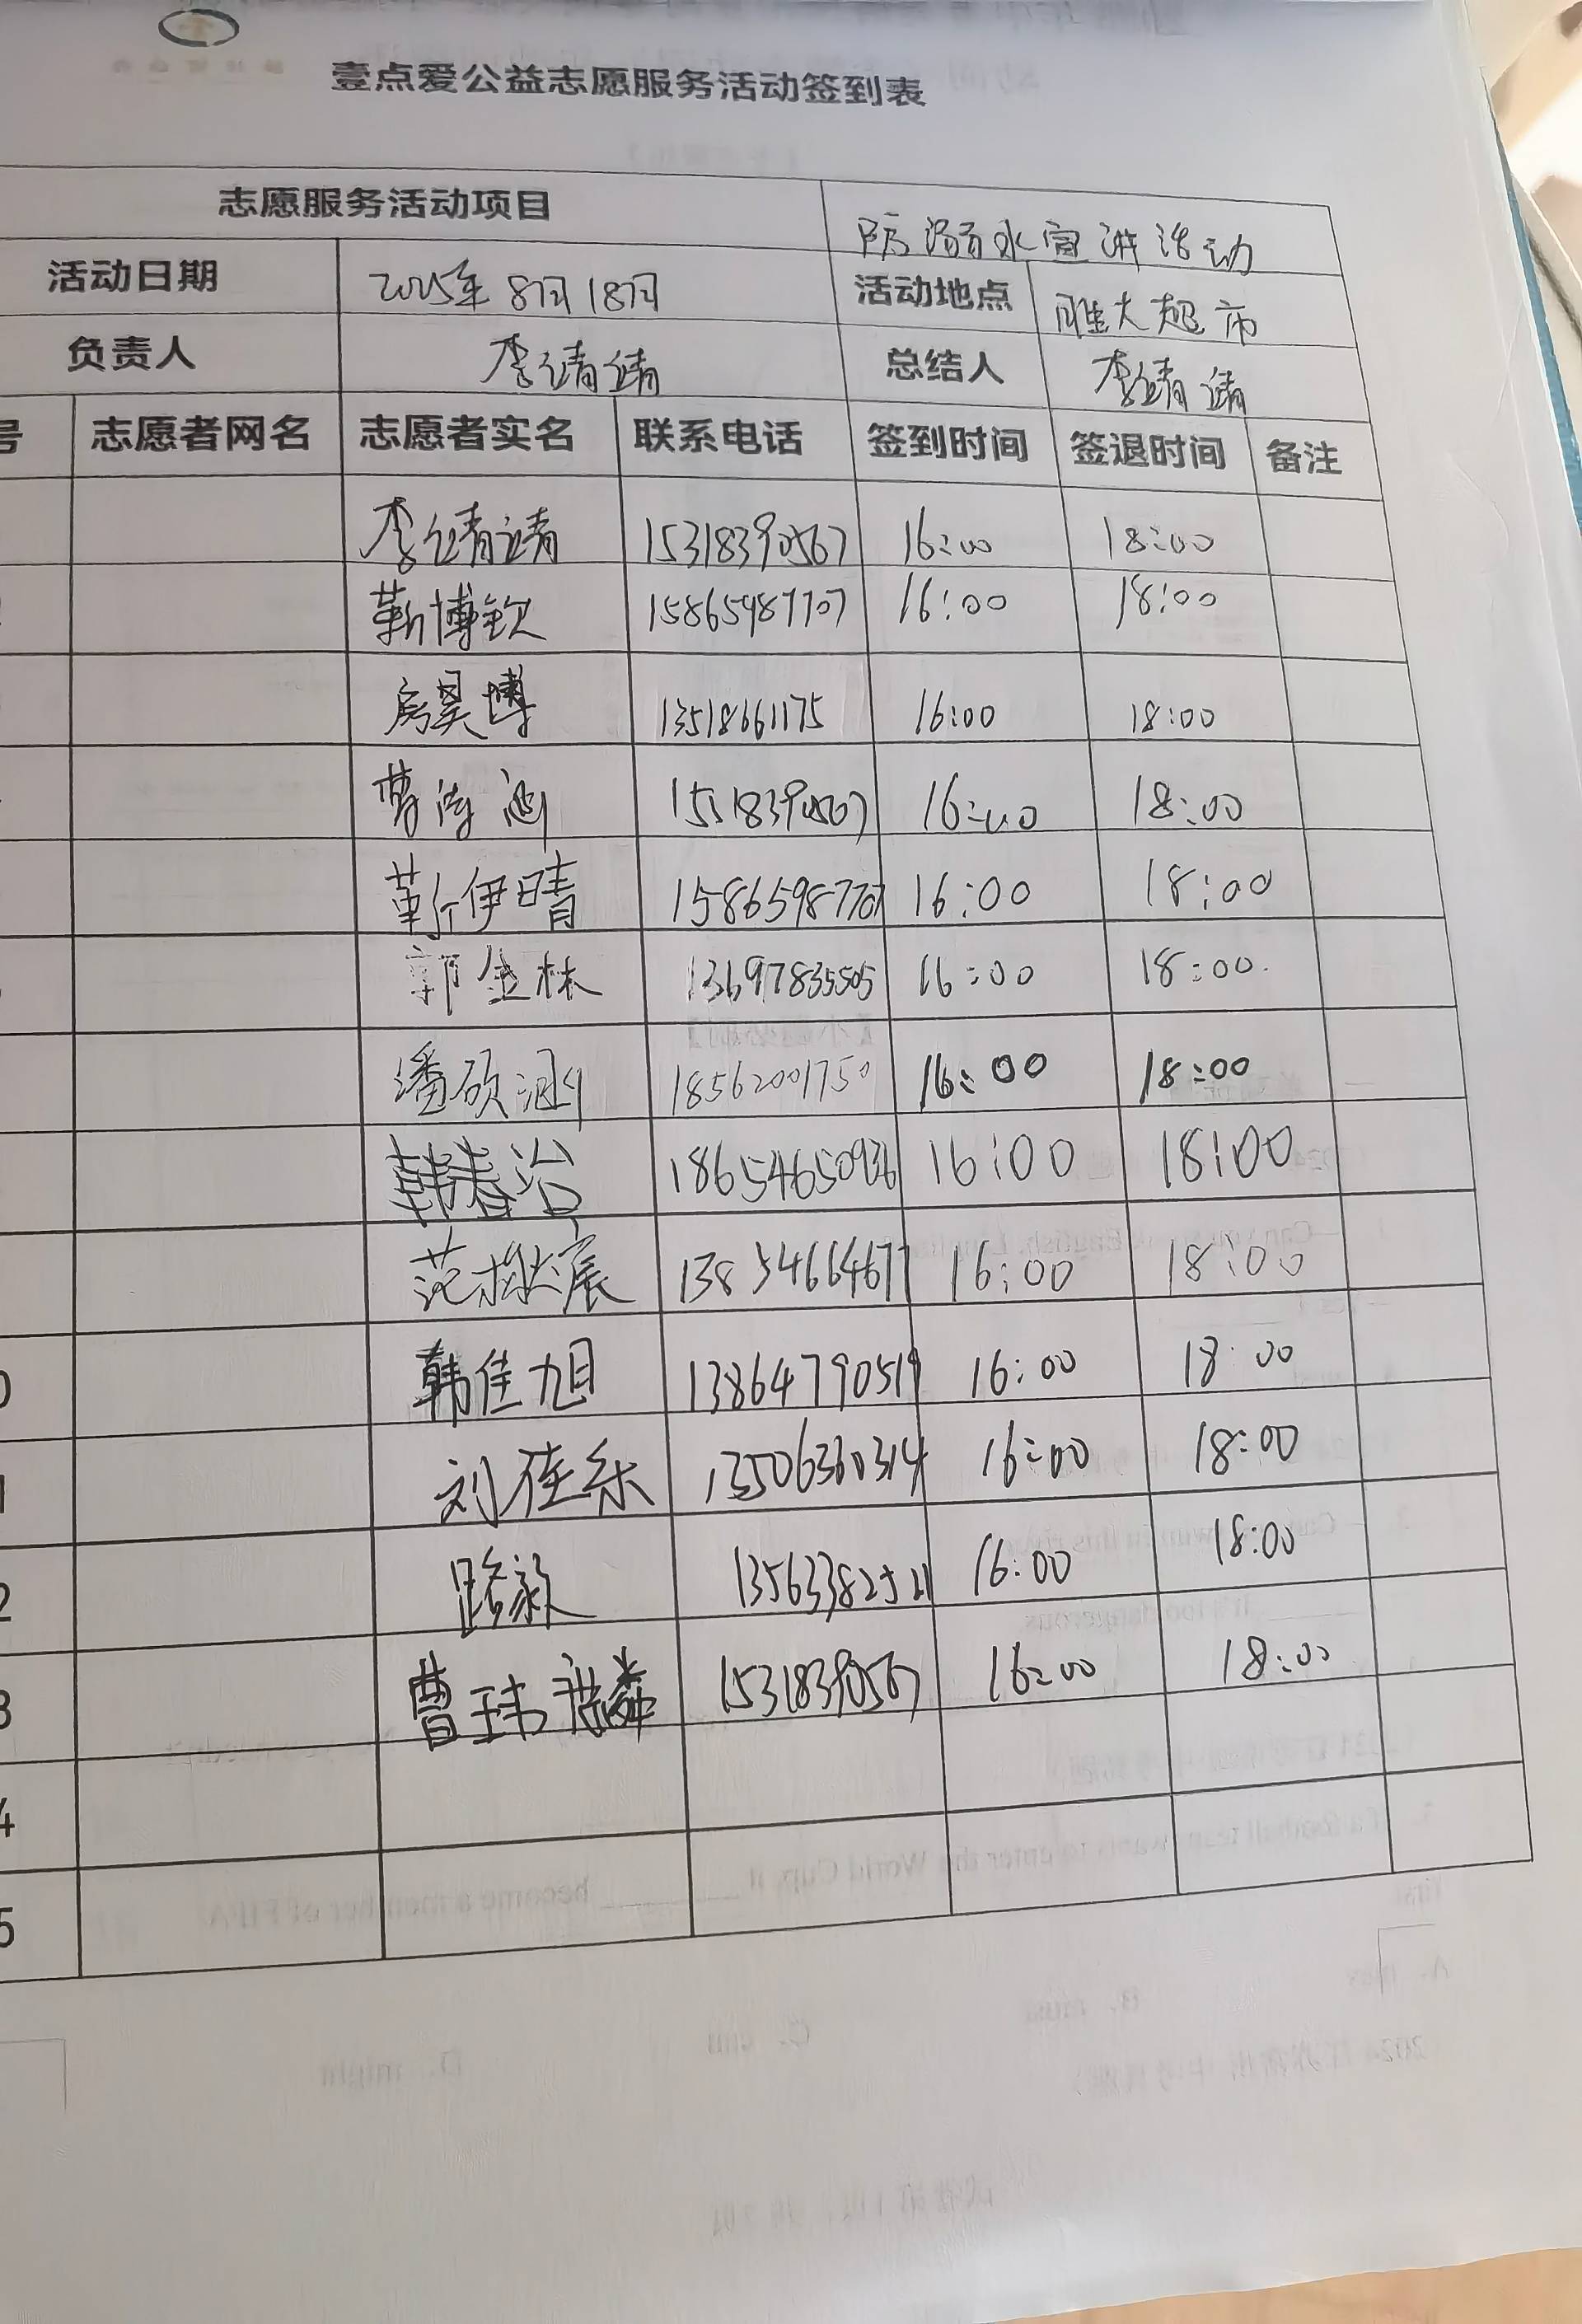 壹点爱公益志愿服务活动签到表
志愿服务活动项目 防溺水宣讲活动
活动日期 2025年8月18日 活动地点 胜大超市
负责人 李靖靖 总结人 李靖靖
号 志愿者网名 志愿者实名 联系电话 签到时间 签退时间 备注
李靖靖 15318390567 16:00 18:00
靳博钦 15865987707 16:00 18:00
房昊博 13518661175 16:00 18:00
曹 涵 16:00 18:00
靳伊晴 15865987707 16:00 18:00
郭金林 13697835505 16:00 18:00
潘硕涵 18562001750 16:00 18:00
韩春治 18654650936 16:00 18:00
范 宸 13854664677 16:00 18:00
0 韩佳旭 13864790519 16:00 18:00
1 刘佳乐 13506360314 16:00 18:00
2 路毅 13563382521 16:00 18:00
3 曹玮 麟 15318390567 16:00 18:00
4
5